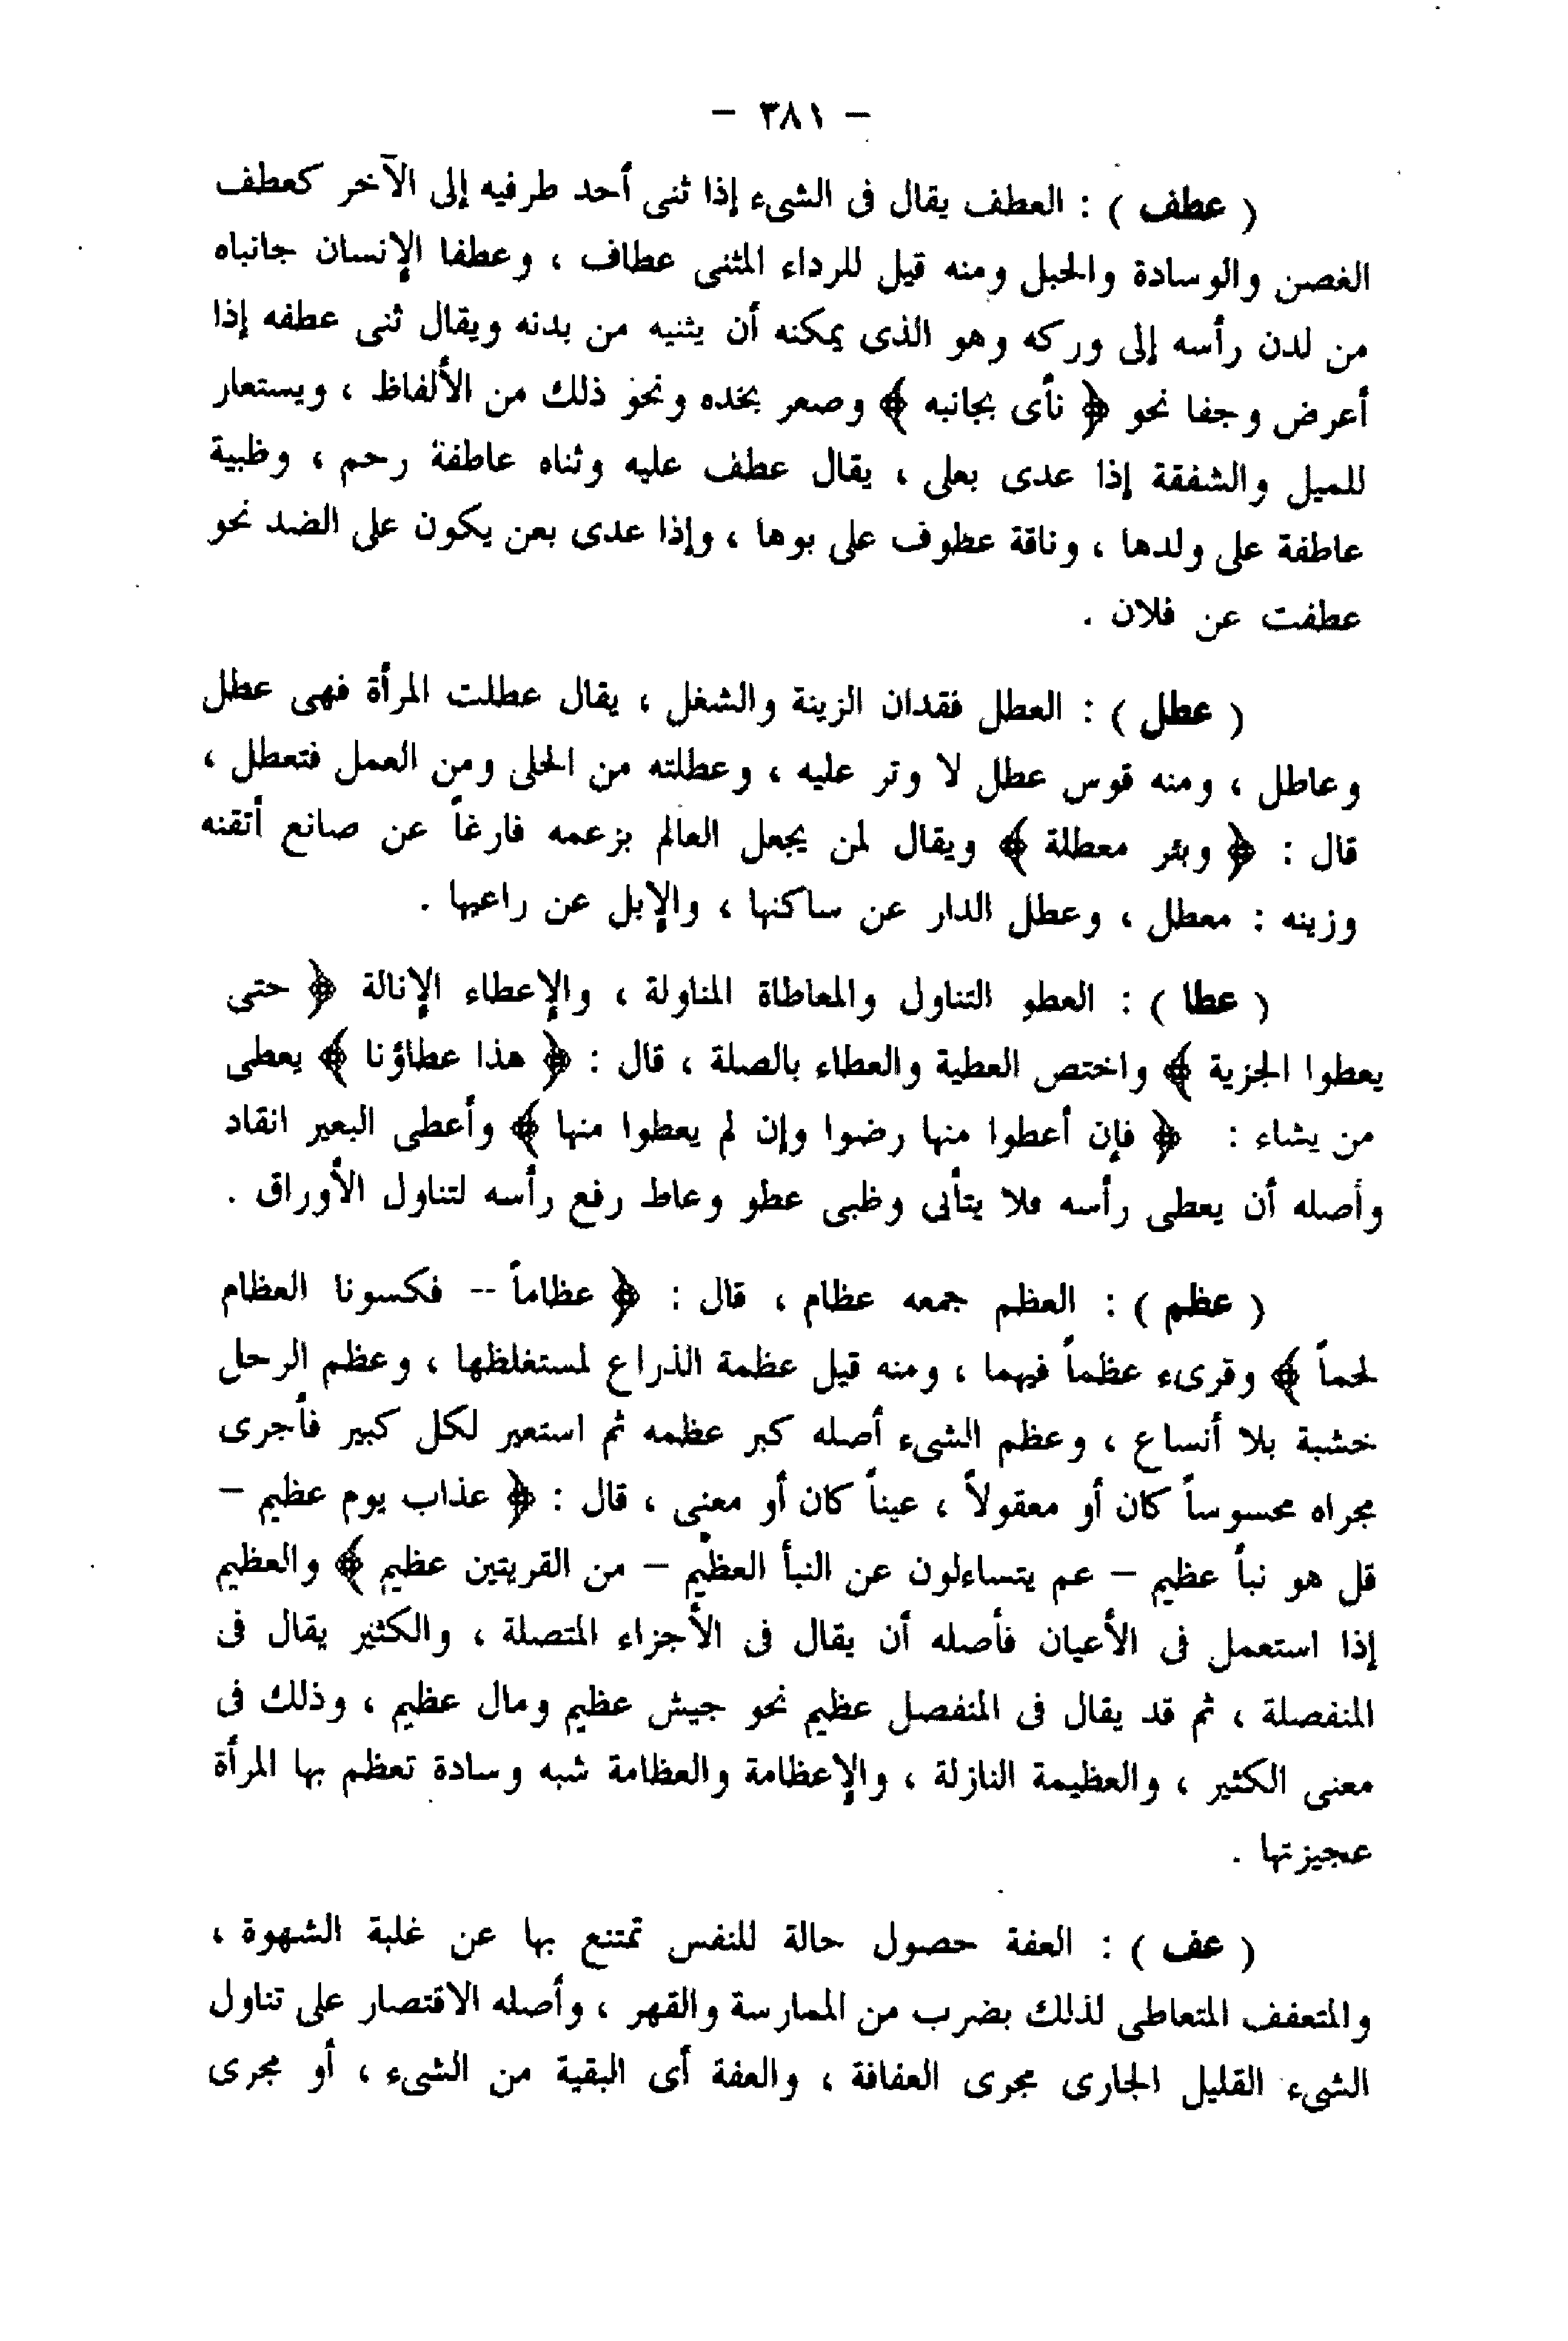 – ٣٨١ –
( عطف ) : العطف يقال فى الشىء إذا ثنى أحد طرفيه إلى الآخر كعطف
الغصن والوسادة والحبل ومنه قيل للرداء المثنى عطاف ، وعطفا الإنسان جانباه
من لدن رأسه إلى وركه وهو الذى يمكنه أن يثنيه من بدنه ويقال ثنى عطفه إذا
أعرض وجفا نحو ﴿ نأى بجانبه ﴾ وصعر بخده ونحو ذلك من الألفاظ ، ويستعار
للميل والشفقة إذا عدى بعلى ، يقال عطف عليه وثناه عاطفة رحم ، وظبية
عاطفة على ولدها ، وناقة عطوف على بوها ، وإذا عدى بعن يكون على الضد نحو
عطفت عن فلان .
( عطل ) : العطل فقدان الزينة والشغل ، يقال عطلت المرأة فهى عطل
وعاطل ، ومنه قوس عطل لا وتر عليه ، وعطلته من الحلى ومن العمل فتعطل ،
قال : ﴿ وبئر معطلة ﴾ ويقال لمن يجعل العالم بزعمه فارغاً عن صانع أتقنه
وزينه : معطل ، وعطل الدار عن ساكنها ، والإبل عن راعيها .
( عطا ) : العطو التناول والمعاطاة المناولة ، والإعطاء الإنالة ﴿ حتى
يعطوا الجزية ﴾ واختص العطية والعطاء بالصلة ، قال : ﴿ هذا عطاؤنا ﴾ يعطى
من يشاء : ﴿ فإن أعطوا منها رضوا وإن لم يعطوا منها ﴾ وأعطى البعير انقاد
وأصله أن يعطى رأسه فلا يتأبى وظبى عطو وعاط رفع رأسه لتناول الأوراق .
( عظم ) : العظم جمعه عظام ، قال : ﴿ عظاماً -- فكسونا العظام
لحماً ﴾ وقرىء عظماً فيهما ، ومنه قيل عظمة الذراع لمستغلظها ، وعظم الرحل
خشبة بلا أنساع ، وعظم الشىء أصله كبر عظمه ثم استعير لكل كبير فأجرى
مجراه محسوساً كان أو معقولاً ، عيناً كان أو معنى ، قال : ﴿ عذاب يوم عظيم –
قل هو نبأ عظيم – عم يتساءلون عن النبأ العظيم – من القريتين عظيم ﴾ والعظيم
إذا استعمل فى الأعيان فأصله أن يقال فى الأجزاء المتصلة ، والكثير يقال فى
المنفصلة ، ثم قد يقال فى المنفصل عظيم نحو جيش عظيم ومال عظيم ، وذلك فى
معنى الكثير ، والعظيمة النازلة ، والإعظامة والعظامة شبه وسادة تعظم بها المرأة
عجيزتها .
( عف ) : العفة حصول حالة للنفس تمتنع بها عن غلبة الشهوة ،
والمتعفف المتعاطى لذلك بضرب من الممارسة والقهر ، وأصله الاقتصار على تناول
الشىء القليل الجارى مجرى العفافة ، والعفة أى البقية من الشىء ، أو مجرى